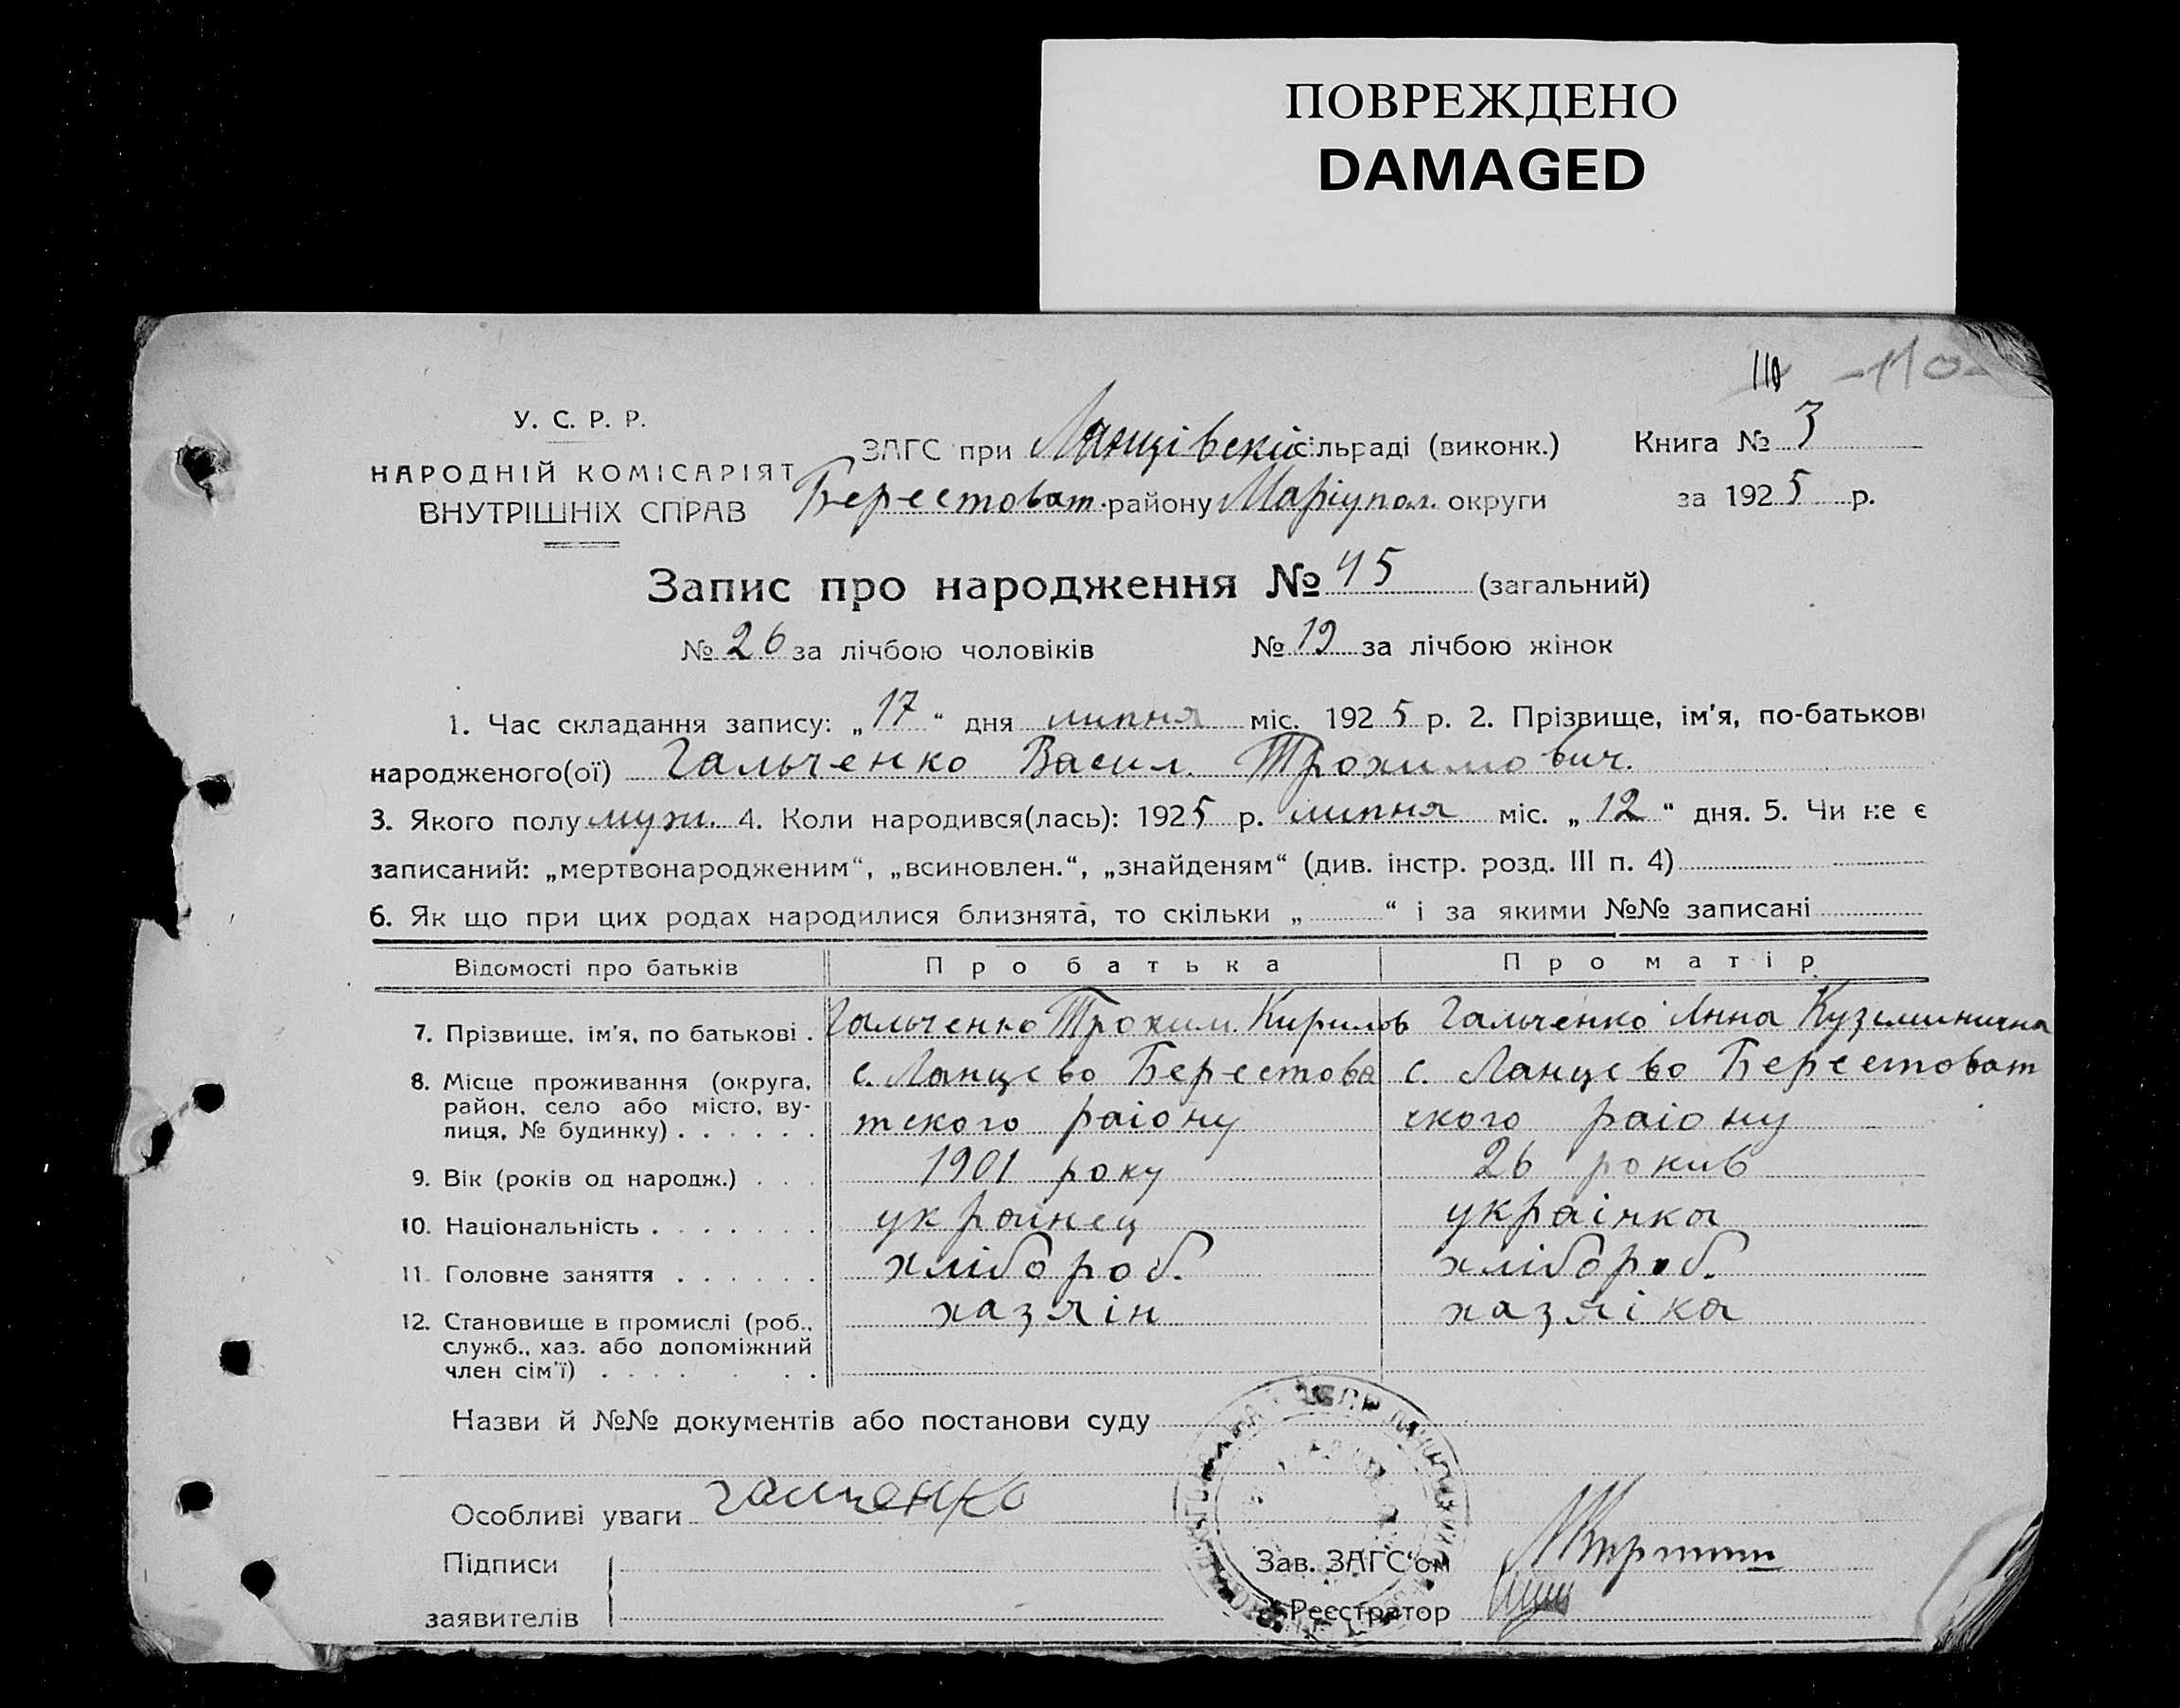 ПОВРЕЖДЕНО
DAMAGED
110 -110-
У. С. Р. Р.
НАРОДНІЙ КОМІСАРІЯТ
ВНУТРІШНІХ СПРАВ
ЗАГС при Ланцівскій сільраді (виконк.) Книга № 3
Берестоват. району Маріупол. округи за 1925 р.
Запис про народження № 45 (загальний)
№ 26 за лічбою чоловіків № 19 за лічбою жінок
1. Час складання запису: „17“ дня липня міс. 1925 р. 2. Прізвище, ім'я, по-батькові
народженого(ої) Гальченко Васил. Трохимович.
3. Якого полу муж. 4. Коли народився(лась): 1925 р. липня міс. „12“ дня. 5. Чи не є
записаний: „мертвонародженим“, „всиновлен.“, „знайденям“ (див. інстр. розд. III п. 4)
6. Як що при цих родах народилися близнята, то скільки „ “ і за якими №№ записані
Відомості про батьків Про батька Про матір
7. Прізвище, ім'я, по батькові . Гальченко Трохим. Кирилов Гальченко Анна Кузьминична
8. Місце проживання (округа, с. Ланцево Берестова с. Ланцево Берестоват
район, село або місто, ву-
лиця, № будинку) . . . . . . тского раіону ского раіону
9. Вік (років од народж.) . . . 1901 року 26 рокив
10. Національність . . . . . . . украинец украінка
11. Головне заняття . . . . . . хлібороб. хлібороб.
12. Становище в промислі (роб., хазяін хазяіка
служб., хаз. або допоміжний
член сім'ї) . . . . . . .
Назви й №№ документів або постанови суду
Особливі уваги галченко
Підписи Зав. ЗАГС'ом
заявителів Реєстратор